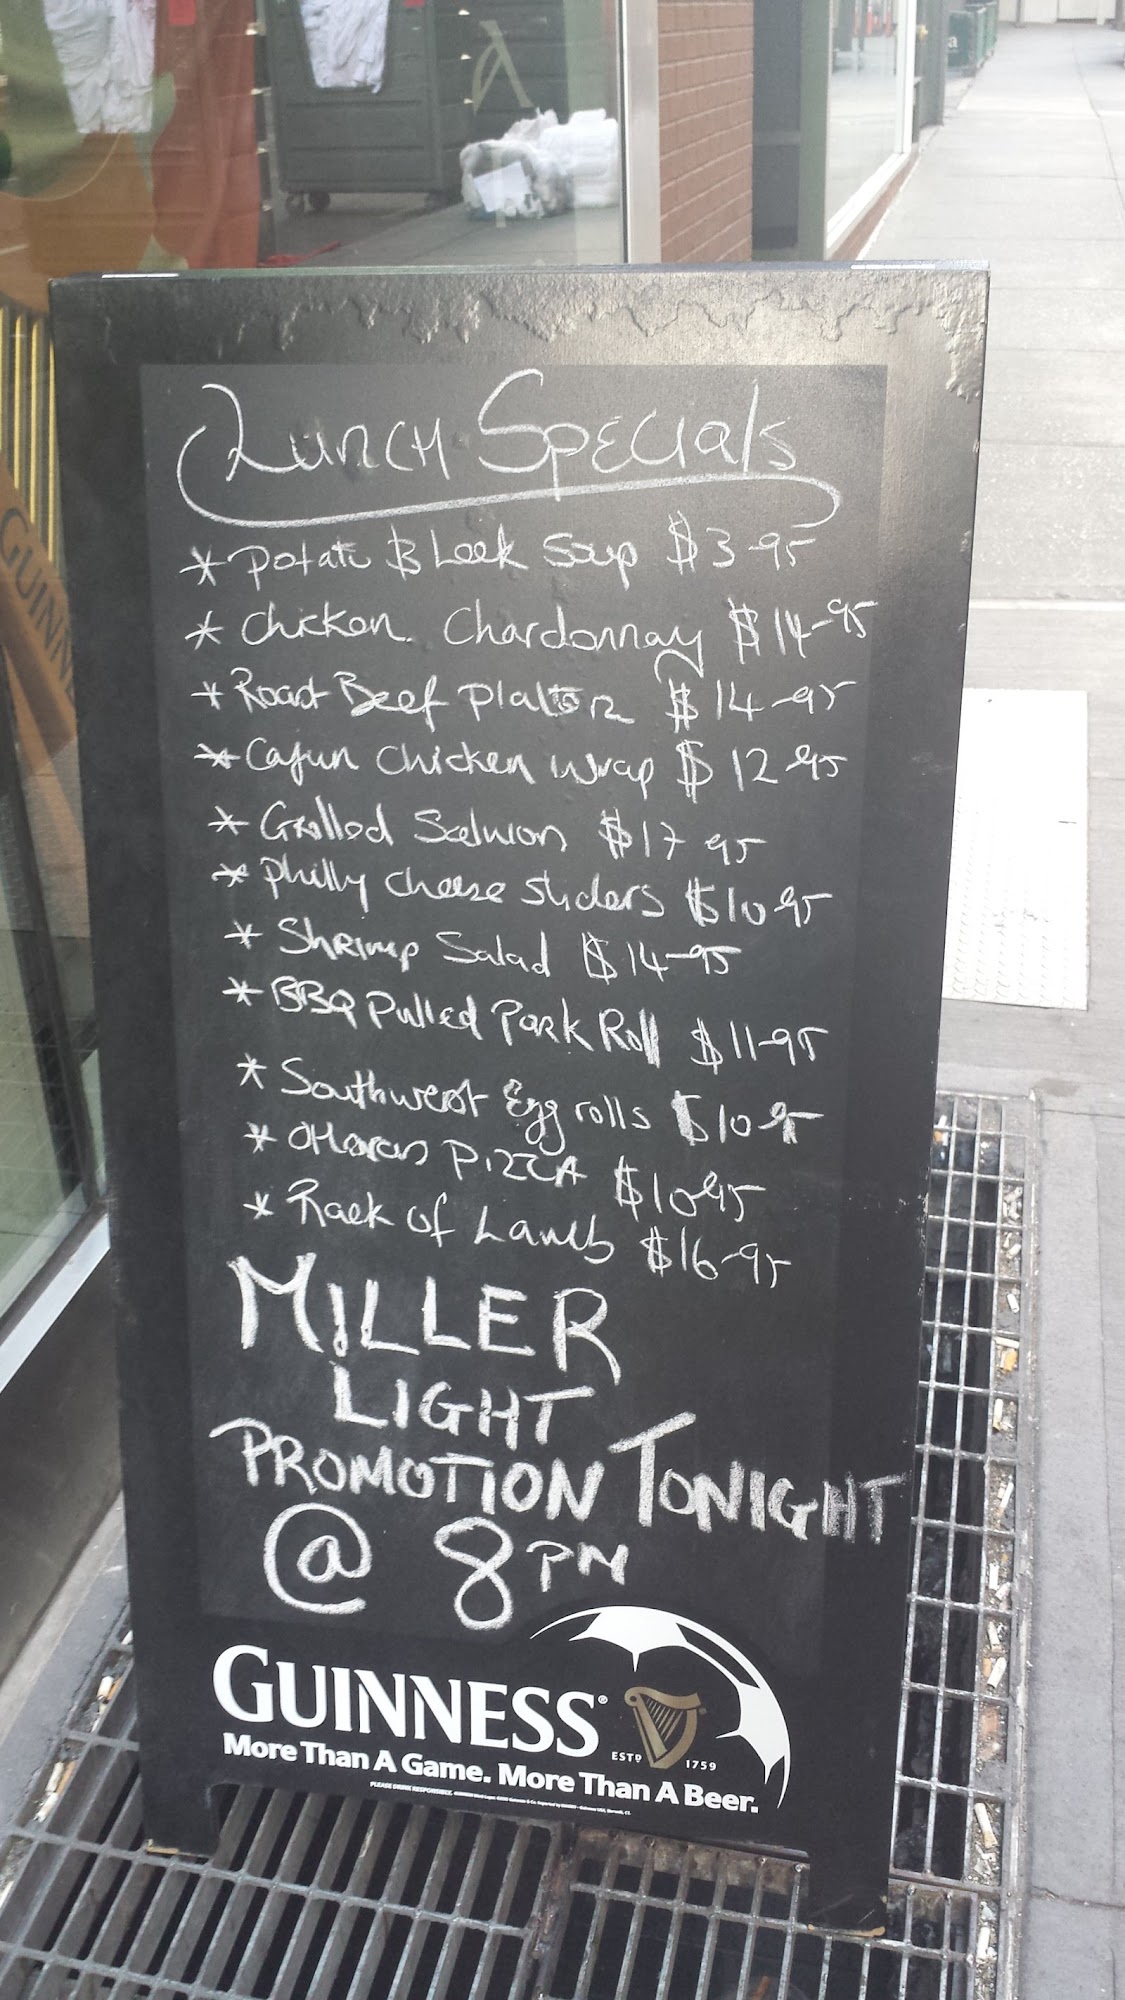 Lunch Specials
* Potato & Leek Soup $3-95
* Chicken Chardonnay $14-95
* Roast Beef Platter $14-95
* Cajun Chicken Wrap $12-95
* Grilled Salmon $17 95
* Philly Cheese Sliders $10 95
* Shrimp Salad $14-95
* BBQ Pulled Pork Roll $11-95
* Southwest Egg rolls $10-95
* OHaras PIZZA $10-95
* Rack of Lamb $16-95
MILLER
LIGHT
PROMOTION TONIGHT
@ 8PM
GUINNESS®
ESTD 1759
More Than A Game. More Than A Beer.
PLEASE DRINK RESPONSIBLY.
GUINNE